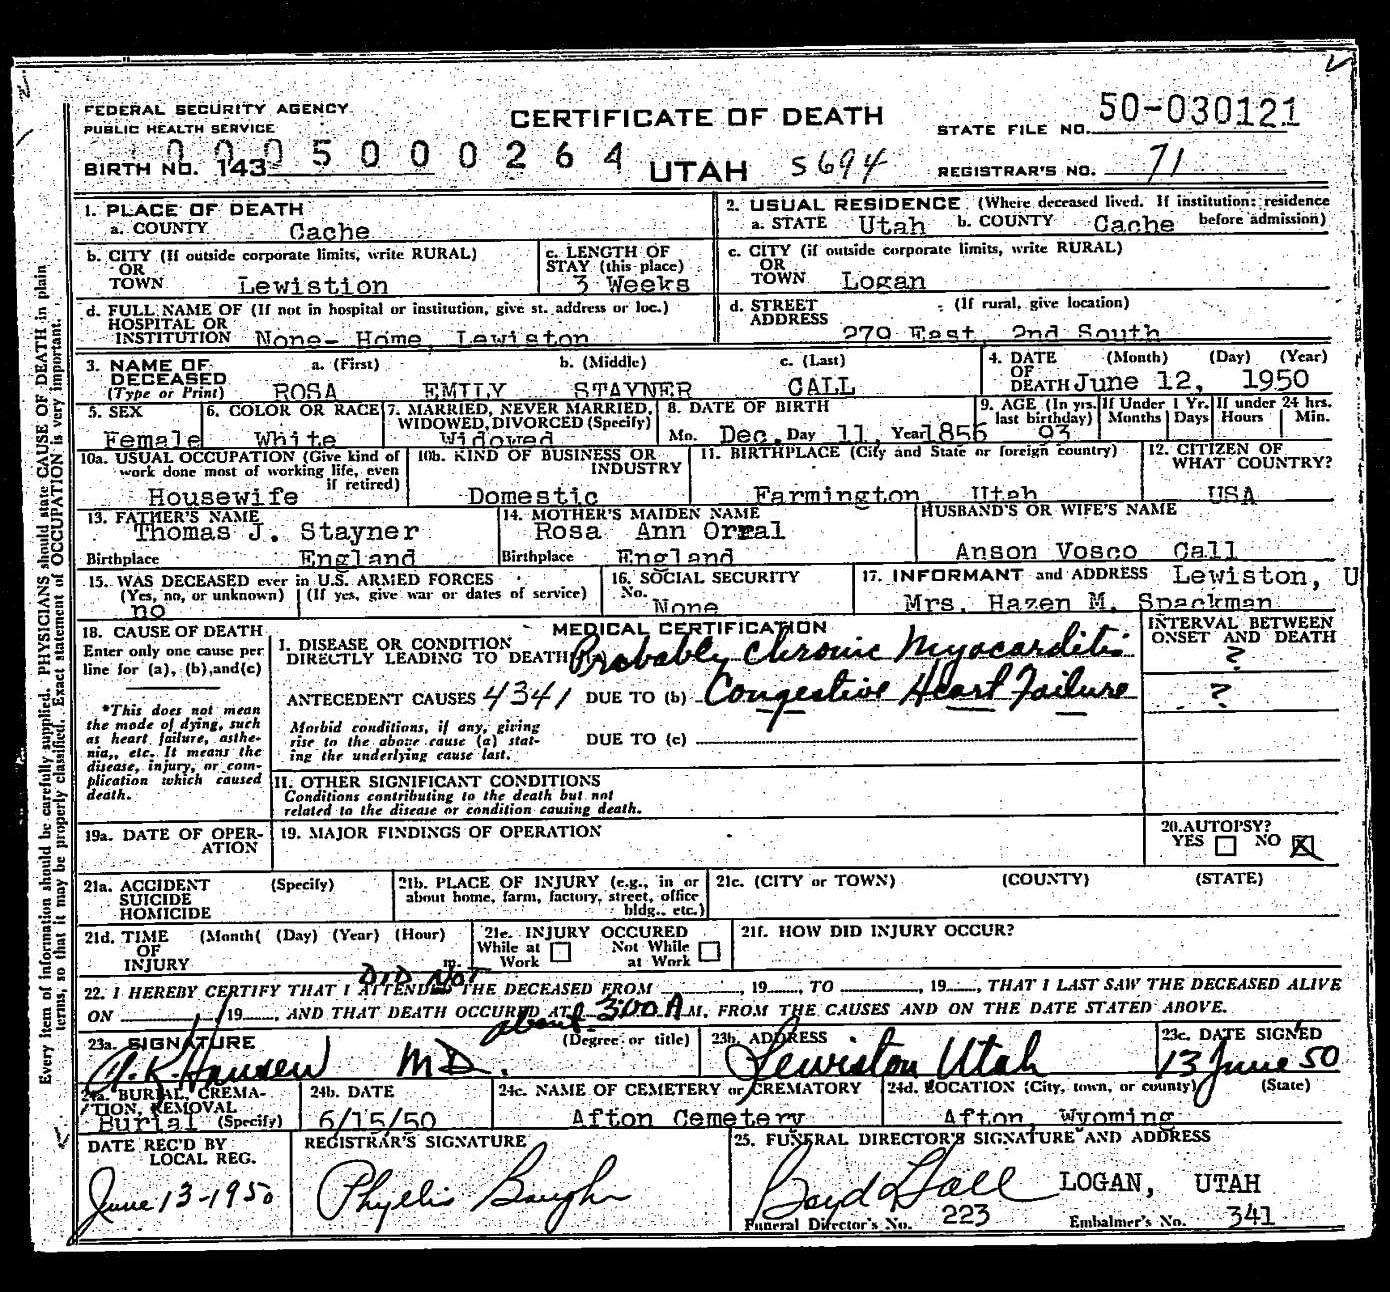 FEDERAL SECURITY AGENCY
PUBLIC HEALTH SERVICE
CERTIFICATE OF DEATH
STATE FILE NO. 50-030121
0005000264
BIRTH NO. 143
UTAH 5694
REGISTRAR'S NO. 71
1. PLACE OF DEATH
a. COUNTY Cache
2. USUAL RESIDENCE (Where deceased lived. If institution: residence before admission)
a. STATE Utah b. COUNTY Cache
b. CITY (If outside corporate limits, write RURAL)
OR
TOWN Lewistion
c. LENGTH OF
STAY (this place)
3 Weeks
c. CITY (if outside corporate limits, write RURAL)
OR
TOWN Logan
d. FULL NAME OF (If not in hospital or institution, give st. address or loc.)
HOSPITAL OR
INSTITUTION None- Home, Lewiston
d. STREET (If rural, give location)
ADDRESS 279 East, 2nd South
3. NAME OF a. (First) b. (Middle) c. (Last)
DECEASED
(Type or Print) ROSA EMILY STAYNER CALL
4. DATE (Month) (Day) (Year)
OF
DEATH June 12, 1950
5. SEX
Female
6. COLOR OR RACE
White
7. MARRIED, NEVER MARRIED,
WIDOWED, DIVORCED (Specify)
Widowed
8. DATE OF BIRTH
Mo. Dec. Day 11, Year 1856
9. AGE (In yrs. last birthday)
93
If Under 1 Yr.
Months Days
If under 24 hrs.
Hours Min.
10a. USUAL OCCUPATION (Give kind of
work done most of working life, even
if retired)
Housewife
10b. KIND OF BUSINESS OR
INDUSTRY
Domestic
11. BIRTHPLACE (City and State or foreign country)
Farmington, Utah
12. CITIZEN OF
WHAT COUNTRY?
USA
13. FATHER'S NAME
Thomas J. Stayner
Birthplace England
14. MOTHER'S MAIDEN NAME
Rosa Ann Orral
Birthplace England
HUSBAND'S OR WIFE'S NAME
Anson Vosco Call
15. WAS DECEASED ever in U.S. ARMED FORCES
(Yes, no, or unknown) (If yes, give war or dates of service)
no
16. SOCIAL SECURITY
No. None
17. INFORMANT and ADDRESS Lewiston, U
Mrs. Hazen M. Spackman
18. CAUSE OF DEATH
Enter only one cause per
line for (a), (b), and (c)
*This does not mean
the mode of dying, such
as heart failure, asthe-
nia,, etc. It means the
disease, injury, or com-
plication which caused
death.
MEDICAL CERTIFICATION
I. DISEASE OR CONDITION
DIRECTLY LEADING TO DEATH Probably Chronic Myocarditis
ANTECEDENT CAUSES 4341 DUE TO (b) Congestive Heart Failure
Morbid conditions, if any, giving
rise to the above cause (a) stat-
ing the underlying cause last.
DUE TO (c)
INTERVAL BETWEEN
ONSET AND DEATH
?
?
II. OTHER SIGNIFICANT CONDITIONS
Conditions contributing to the death but not
related to the disease or condition causing death.
19a. DATE OF OPER-
ATION
19. MAJOR FINDINGS OF OPERATION
20. AUTOPSY?
YES NO X
21a. ACCIDENT (Specify)
SUICIDE
HOMICIDE
21b. PLACE OF INJURY (e.g., in or
about home, farm, factory, street, office
bldg., etc.)
21c. (CITY or TOWN) (COUNTY) (STATE)
21d. TIME (Month( (Day) (Year) (Hour)
OF
INJURY m.
21e. INJURY OCCURED
While at Work Not While at Work
21f. HOW DID INJURY OCCUR?
DID NOT
22. I HEREBY CERTIFY THAT I ATTENDED THE DECEASED FROM , 19 , TO , 19 , THAT I LAST SAW THE DECEASED ALIVE
ON , 19 , AND THAT DEATH OCCURED AT about 3:00 A M. FROM THE CAUSES AND ON THE DATE STATED ABOVE.
23a. SIGNATURE (Degree or title)
A. K. Hansen MD.
23b. ADDRESS
Lewiston Utah
23c. DATE SIGNED
13 June 50
24a. BURIAL, CREMA-
TION, REMOVAL
Burial (Specify)
24b. DATE
6/15/50
24c. NAME OF CEMETERY or CREMATORY
Afton Cemetery
24d. LOCATION (City, town, or county) (State)
Afton, Wyoming
DATE REC'D BY
LOCAL REG.
June 13-1950
REGISTRAR'S SIGNATURE
Phyllis Baugh
25. FUNERAL DIRECTOR'S SIGNATURE AND ADDRESS
Boyd Hall LOGAN, UTAH
Funeral Director's No. 223 Embalmer's No. 341
Every item of information should be carefully supplied. PHYSICIANS should state CAUSE OF DEATH in plain
terms, so that it may be properly classified. Exact statement of OCCUPATION is very important.